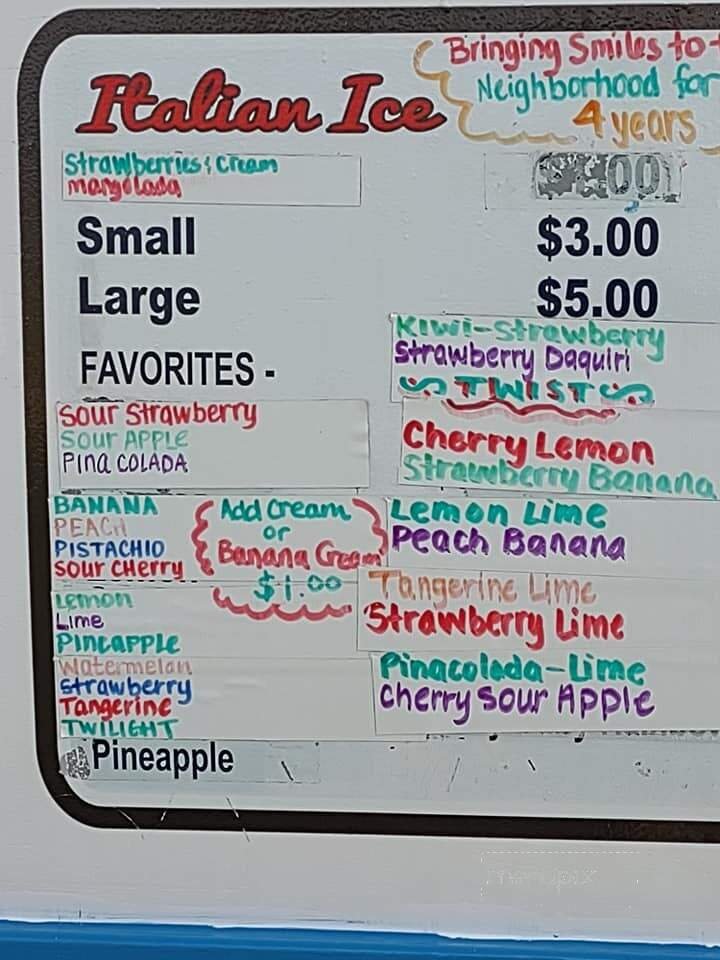 Bringing Smiles to
Neighborhood for
4 years
Italian Ice
Strawberries & Cream
mangolada
Small $3.00
Large $5.00
FAVORITES -
Sour Strawberry
Sour APPLE
PINA COLADA
BANANA
PEACH
PISTACHIO
SOUR CHERRY
Lemon
Lime
PINEAPPLE
Watermelon
Strawberry
Tangerine
TWILIGHT
Pineapple
Add Cream
or
Banana Cream
$1.00
Kiwi-Strawberry
Strawberry Daquiri
TWIST
Cherry Lemon
Strawberry Banana
Lemon Lime
Peach Banana
Tangerine Lime
Strawberry Lime
Pinacolada-Lime
Cherry Sour Apple